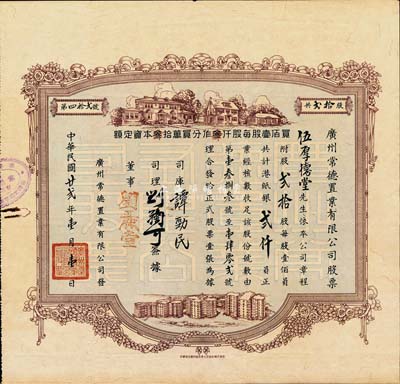 共貳拾股
第四拾貳號
額定資本拾萬員分作仟股每股壹佰員
廣州常德置業有限公司股票
伍厚德堂先生依本公司章程
附股貳拾股每股壹佰員
共計港紙銀貳仟員正
業經核數收足該股份號數由
第壹叁捌叁號至壹肆零貳號
理合發回正式股票壹張為據
司庫 譚勁民
司理
董事
廣州常德置業有限公司發
中華民國廿貳年壹月壹日